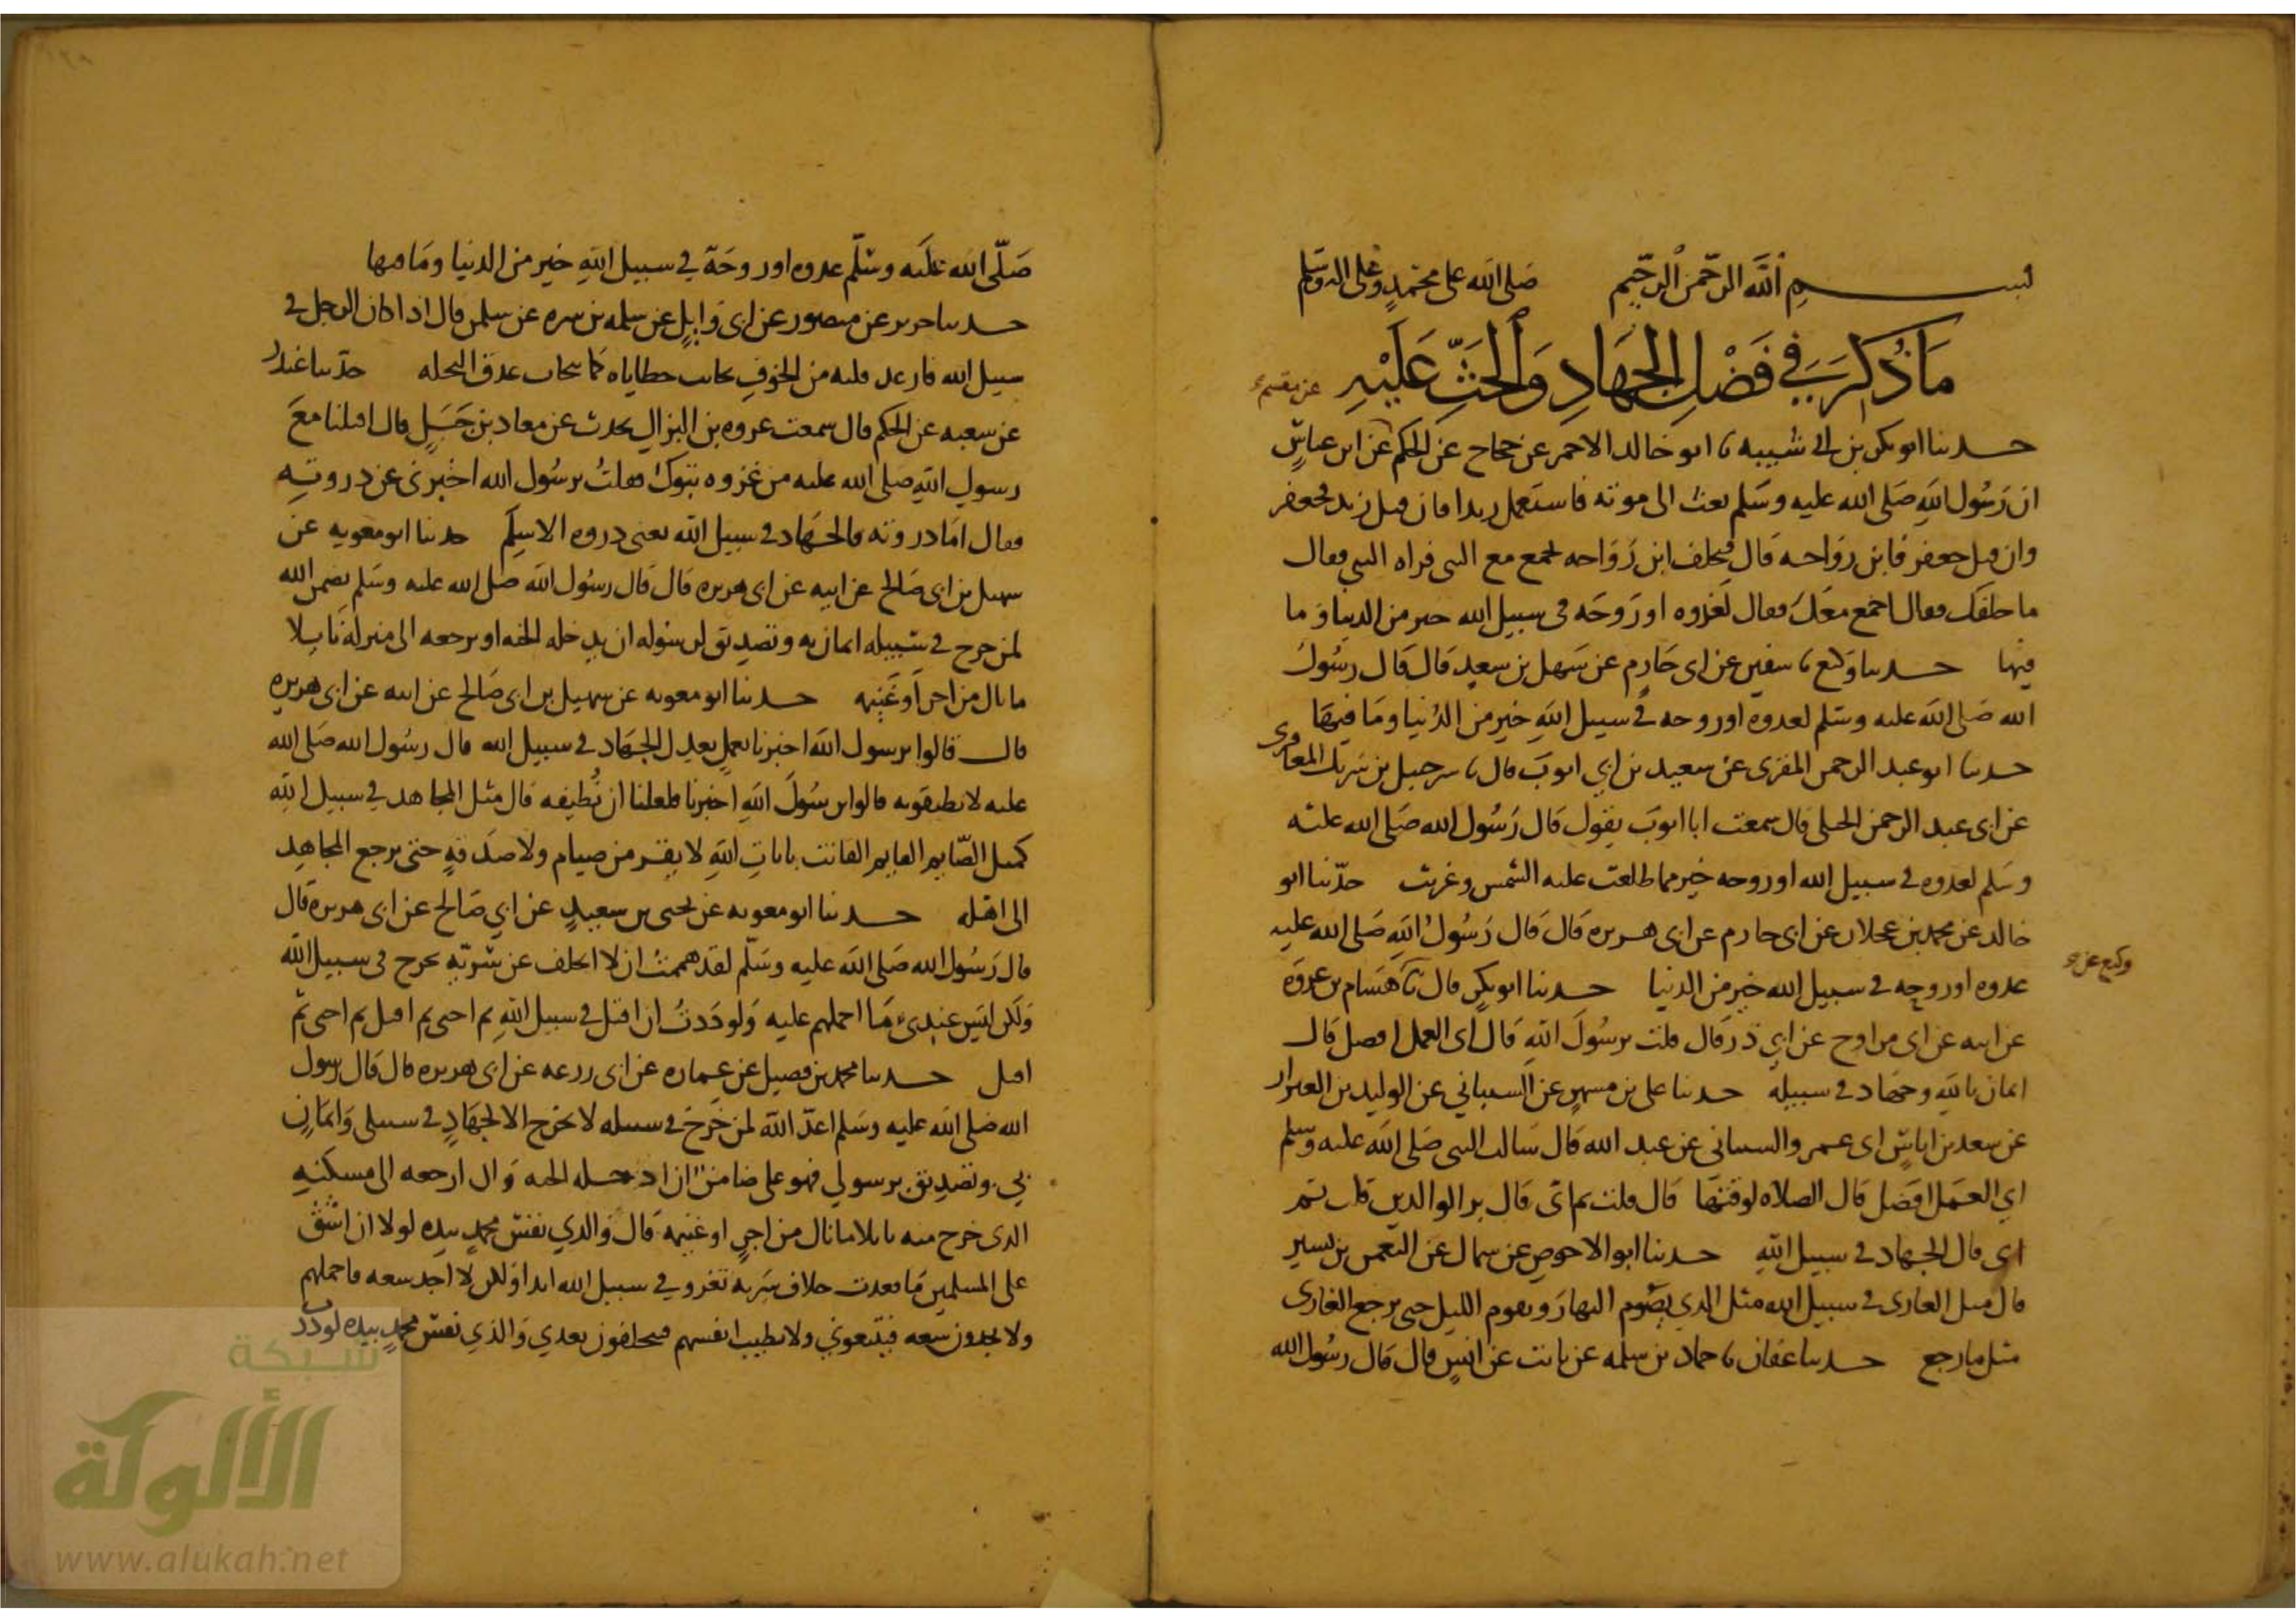 بسم الله الرحمن الرحيم صلى الله على محمد وعلى اله وسلم
مَا ذُكِرَ فِي فَضْلِ الجِهَادِ وَالحَثِّ عَلَيْهِ
عن مقسم
حدثنا ابو بكر بن ابي شيبه نا ابو خالد الاحمر عن حجاج عن الحكم عن ابن عباس
ان رسول الله صلى الله عليه وسلم بعث الى موته فاستعمل زيدا فان قتل زيد فجعفر
وان قتل جعفر فابن رواحه قال فتخلف ابن رواحه فجمع مع النبي فراه النبي فقال
ما خلفك فقال اجمع معك فقال لغدوه او روحه في سبيل الله خير من الدنيا وما
فيها حدثنا وكيع نا سفين عن ابى حازم عن سهل بن سعيد قال قال رسول
الله صلى الله عليه وسلم لغدوة او روحه في سبيل الله خير من الدنيا وما فيها
حدثنا ابو عبد الرحمن المقرى عن سعيد بن ابي ايوب قال نا شرحبيل بن شريك المعافرى
عن ابى عبد الرحمن الحبلى قال سمعت ابا ايوب يقول قال رسول الله صلى الله عليه
وسلم لغدوه في سبيل الله او روحه خير مما طلعت عليه الشمس وغربت حدثنا ابو
خالد عن محمد بن عجلان عن ابى حازم عن ابى هريره قال قال رسول الله صلى الله عليه
غدوه او روحه في سبيل الله خير من الدنيا حدثنا ابو بكر قال نا هشام بن عروه
وكيع عن
عن ابيه عن ابى مراوح عن ابي ذر قال قلت يرسول الله قال اى العمل افضل قال
ايمان بالله وجهاد في سبيله حدثنا على بن مسهر عن الشيباني عن الوليد بن العيزار
عن سعد بن اياس ابى عمرو الشيباني عن عبد الله قال سالت النبي صلى الله عليه وسلم
اي العمل افضل قال الصلاه لوقتها قال قلت ثم اى قال بر الوالدين قلت ثم
اى قال الجهاد في سبيل الله حدثنا ابو الاحوص عن سماك عن النعمن بن بشير
قال مثل الغازى في سبيل الله مثل الذي يصوم النهار ويقوم الليل حتى يرجع الغازى
متى ما رجع حدثنا عفان نا حماد بن سلمه عن ثابت عن انس قال قال رسول الله
صلى الله عليه وسلم غدوه او روحة في سبيل الله خير من الدنيا وما فيها
حدثنا جرير عن منصور عن ابى وايل عن سلمه بن سبره عن سلمن قال اذا كان الرجل في
سبيل الله فارعد قلبه من الخوف تحاتت خطاياه كما تتحات عذق النخله حدثنا غندر
عن شعبه عن الحكم قال سمعت عروه بن النزال يحدث عن معاذ بن جبل قال اقبلنا مع
رسول الله صلى الله عليه من غزوه تبوك فقلت يرسول الله اخبرنى عن ذروته
فقال اما ذروته فالجهاد في سبيل الله يعنى ذروه الاسلم حدثنا ابو معويه عن
سهيل بن ابى صالح عن ابيه عن ابى هريره قال قال رسول الله صلى الله عليه وسلم تضمن الله
لمن خرج في سبيله ايمان به وتصديق لرسوله ان يدخله الجنه او يرجعه الى منزله نايلا
ما نال من اجر او غنيمه حدثنا ابو معويه عن سهيل بن ابى صالح عن ابيه عن ابى هريره
قال قالوا يرسول الله اخبرنا بعمل يعدل الجهاد في سبيل الله قال رسول الله صلى الله
عليه لا تطيقونه قالوا يرسول الله اخبرنا فلعلنا ان نطيقه قال مثل المجاهد في سبيل الله
كمثل الصايم القايم القانت بايات الله لا يفتر من صيام ولا صدقه حتى يرجع المجاهد
الى اهله حدثنا ابو معويه عن يحيى بن سعيد عن ابي صالح عن ابى هريره قال
قال رسول الله صلى الله عليه وسلم لقد هممت ان لا اتخلف عن سريه تخرج في سبيل الله
ولكن ليس عندى ما احملهم عليه ولوددت ان اقتل في سبيل الله ثم احيى ثم اقتل ثم احيى ثم
اقتل حدثنا محمد بن فضيل عن عماره عن ابى زرعه عن ابى هريره قال قال رسول
الله صلى الله عليه وسلم اعد الله لمن خرج في سبيله لا يخرج الا لجهاد في سبيلى وايمان
بي وتصديق برسولي فهو على ضامن ان ادخله الجنه وال ارجعه الى مسكنه
الذى خرج منه نايلا ما نال من اجر او غنيمه قال والذي نفس محمد بيده لولا ان اشق
على المسلمين ما قعدت خلاف سريه تغزو في سبيل الله ابدا ولكن لا اجد سعه فاحملهم
ولا يجدون سعه فيتبعوني ولا تطيب انفسهم فيتخلفون بعدي والذي نفس محمد بيده لوددت
شبكة
الألوكة
www.alukah.net